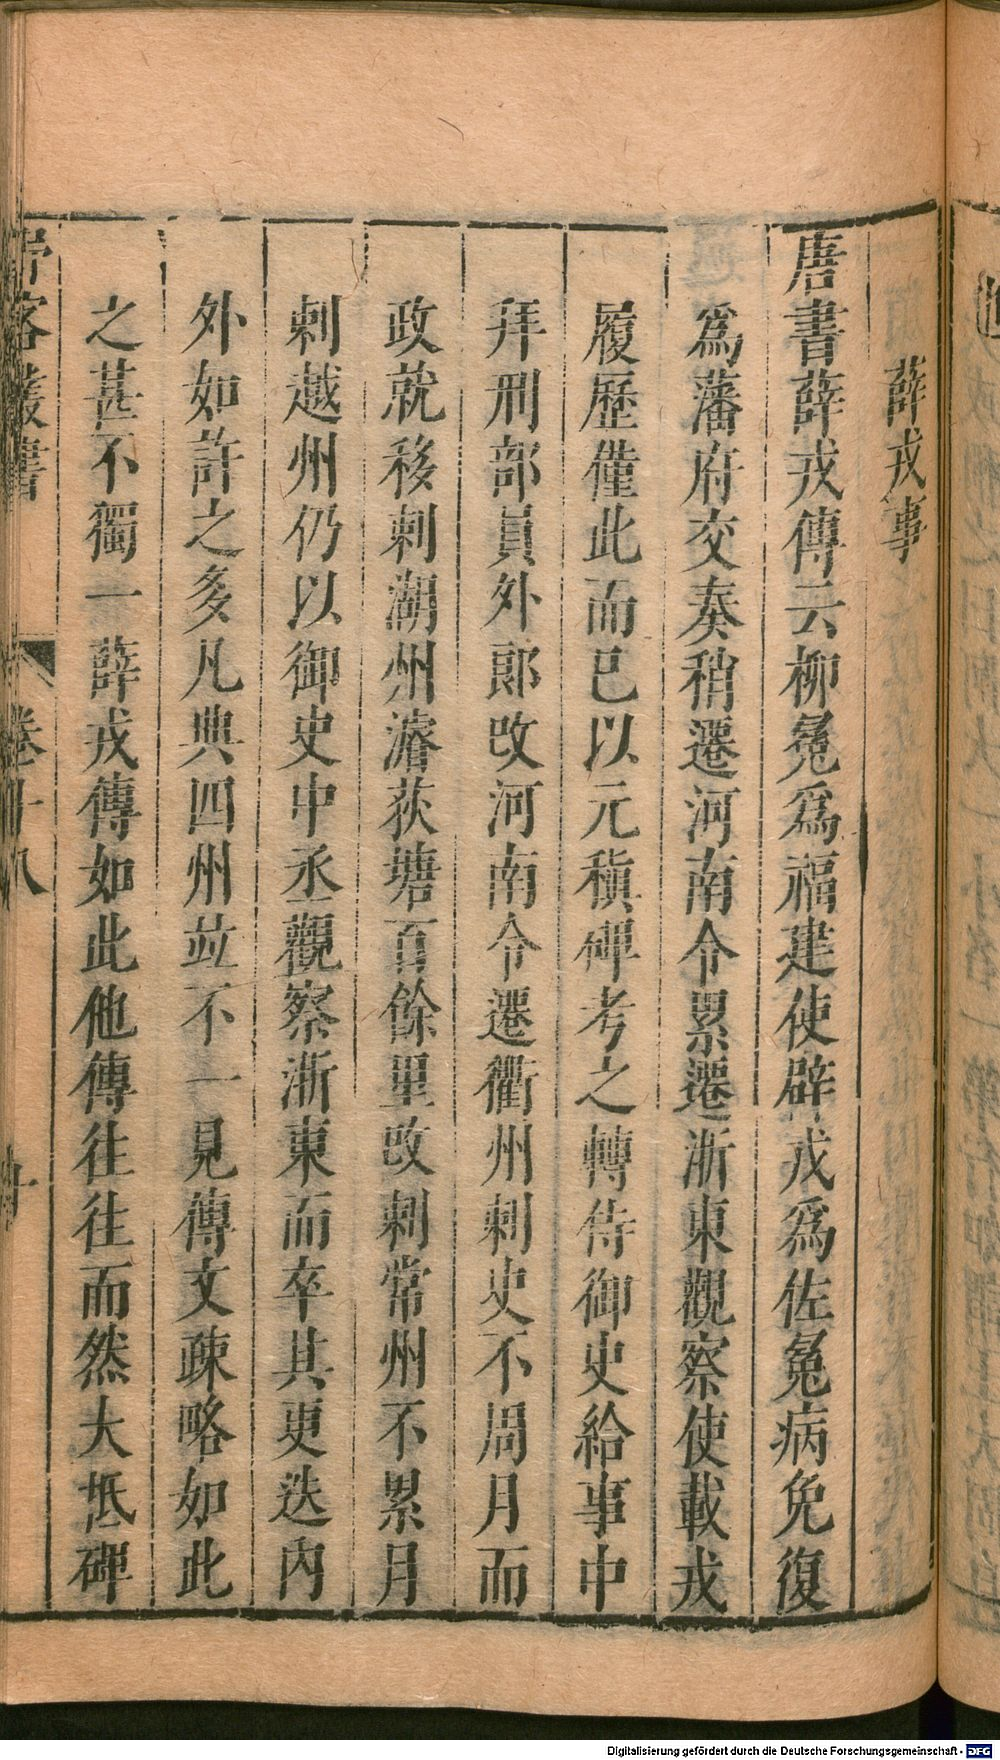 薛戎事
唐書薛戎傳云柳冕爲福建使辟戎爲佐冕病免復
爲藩府交奏稍遷河南令累遷浙東觀察使載戎
履歷僅此而已以元稹碑考之轉侍御史給事中
拜刑部員外郎改河南令遷衢州刺史不周月而
政就移刺湖州濬荻塘百餘里改刺常州不累月
刺越州仍以御史中丞觀察浙東而卒其更迭內
外如許之多凡典四州竝不一見傳文疎略如此
之甚不獨一薛戎傳如此他傳往往而然大抵碑
野客叢書 卷十八 十
Digitalisierung gefördert durch die Deutsche Forschungsgemeinschaft - DFG